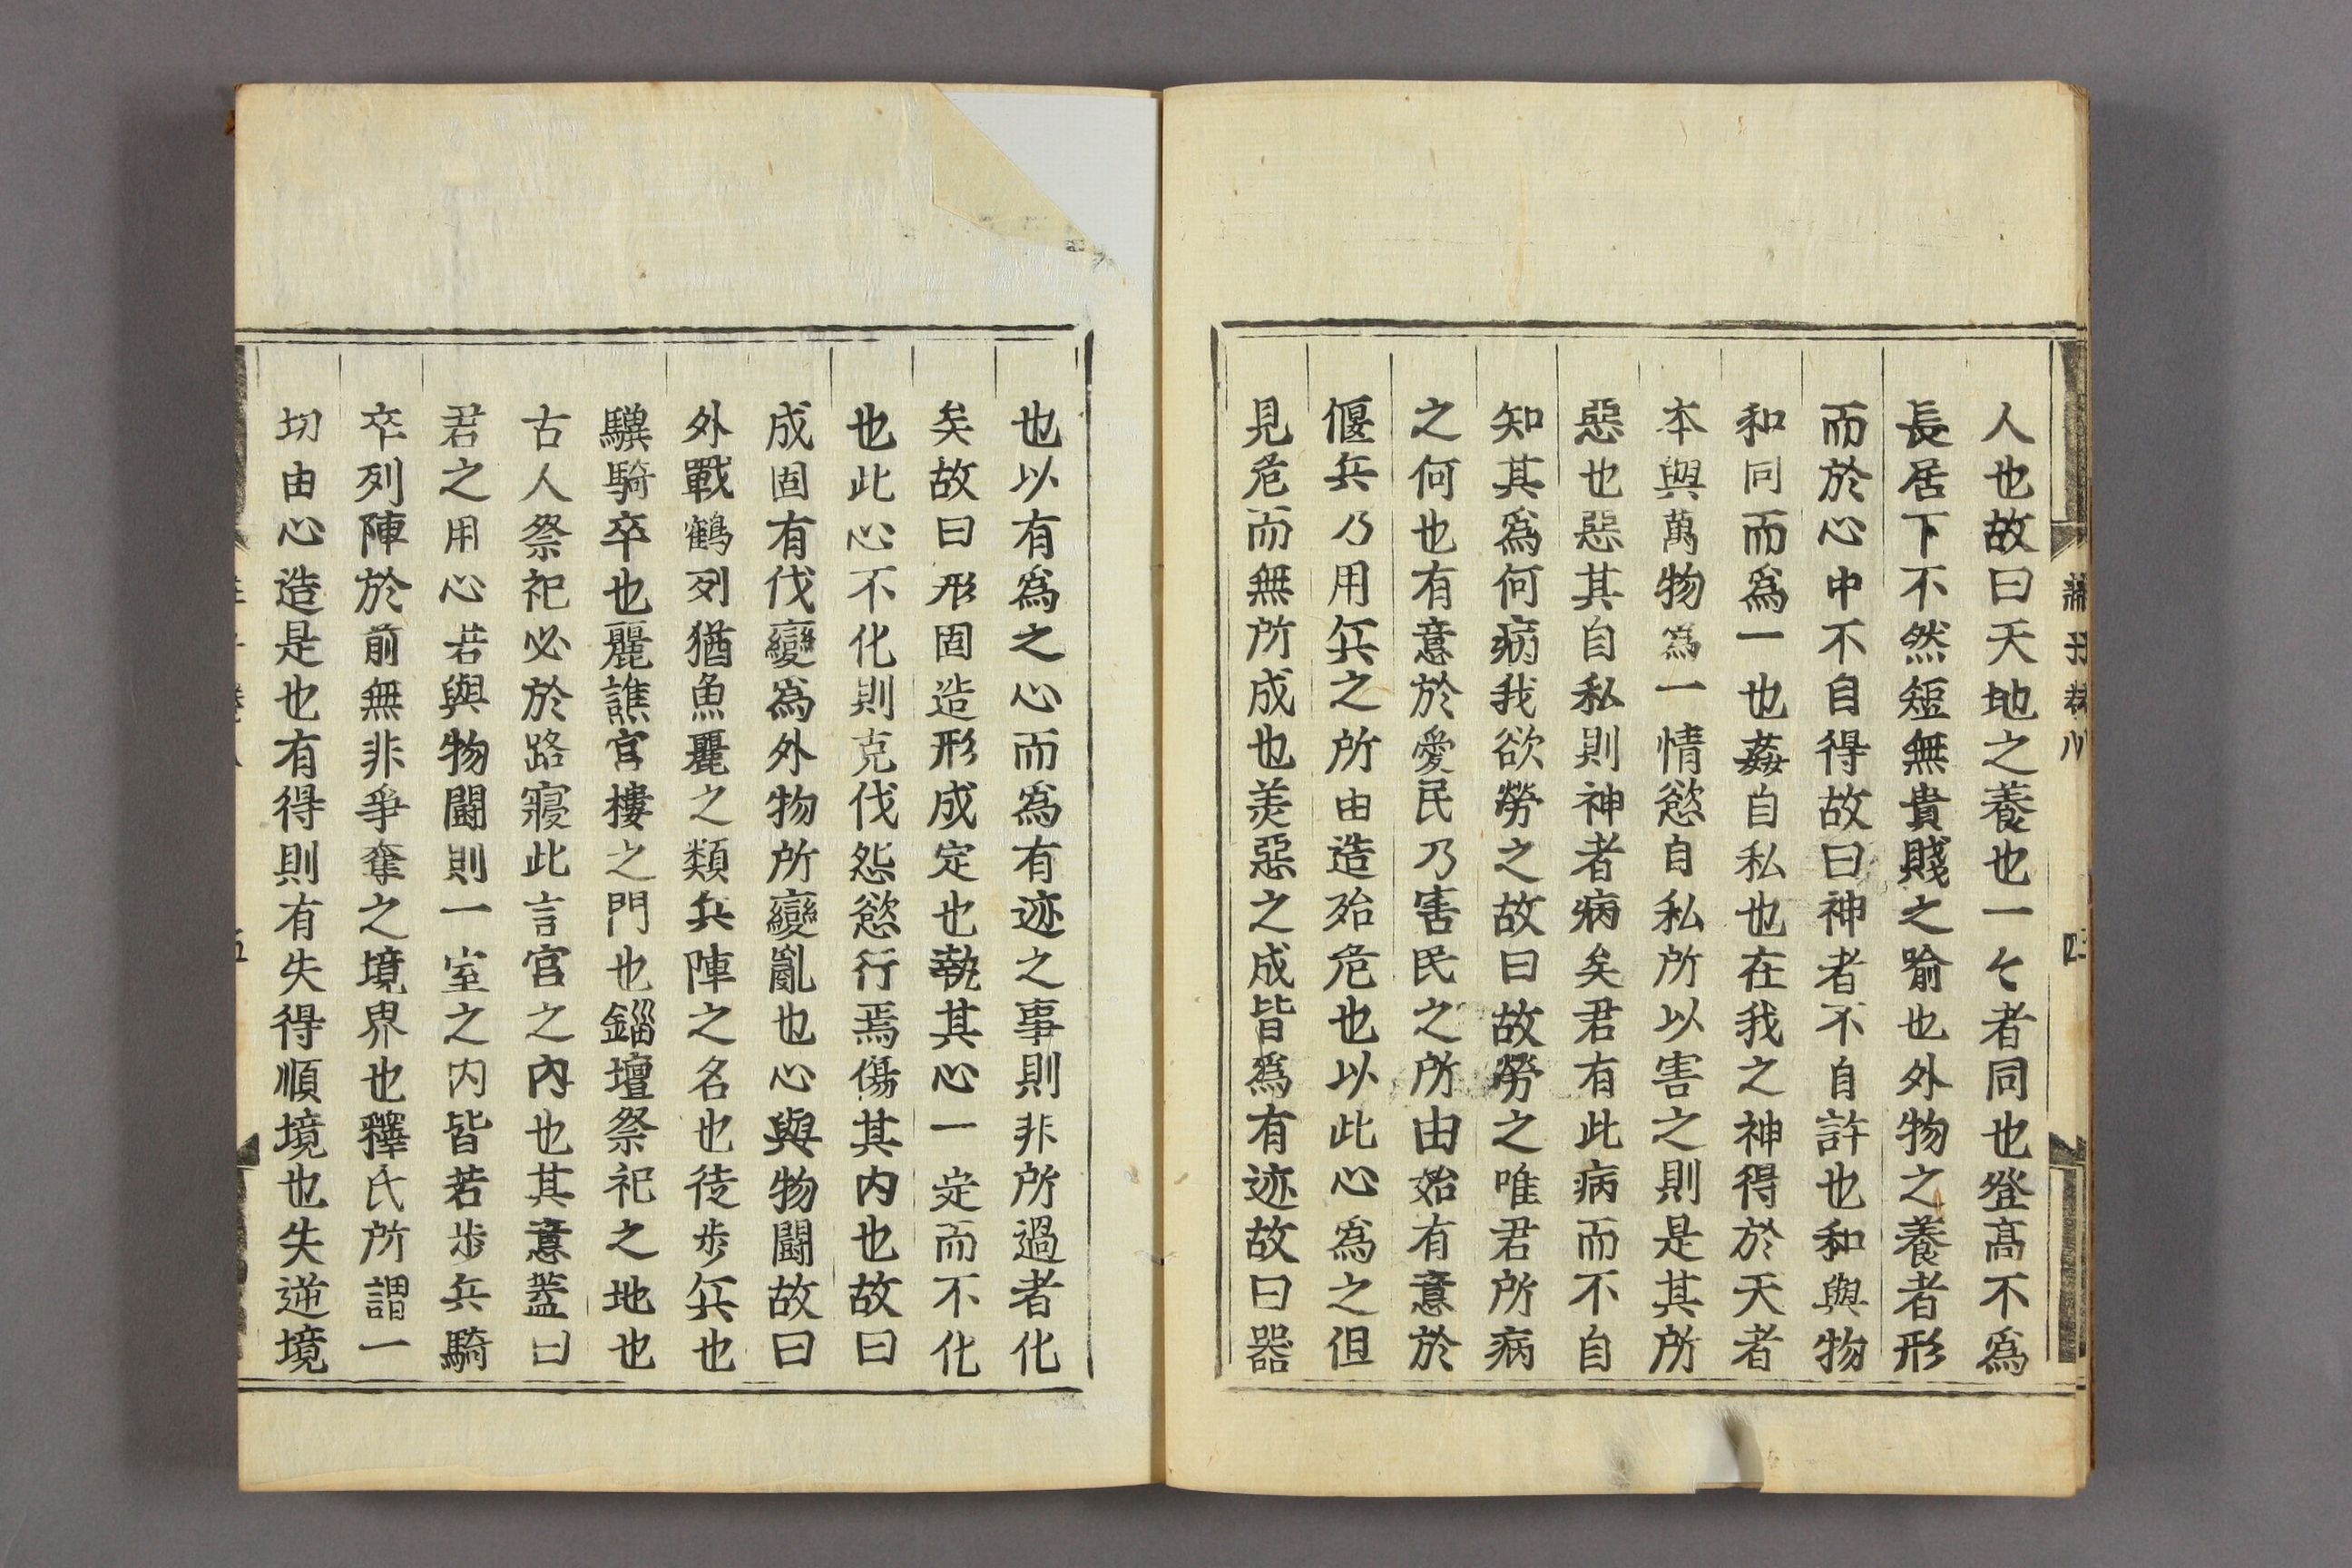 人也故曰天地之養也一々者同也登高不爲
長居下不然短無貴賤之喻也外物之養者形
而於心中不自得故曰神者不自許也和與物
和同而爲一也姦自私也在我之神得於天者
本與萬物爲一情慾自私所以害之則是其所
惡也惡其自私則神者病矣君有此病而不自
知其爲何病我欲勞之故曰故勞之唯君所病
之何也有意於愛民乃害民之所由始有意於
偃兵乃用兵之所由造殆危也以此心爲之但
見危而無所成也美惡之成皆爲有迹故曰器
也以有爲之心而爲有迹之事則非所過者化
矣故曰形固造形成定也執其心一定而不化
也此心不化則克伐怨慾行焉傷其内也故曰
成固有伐變爲外物所變亂也心與物鬪故曰
外戰鶴列猶魚麗之類兵陣之名也徒步兵也
驥騎卒也麗譙宮樓之門也錙壇祭祀之地也
古人祭祀必於路寢此言宮之内也其意蓋曰
君之用心若與物鬪則一室之内皆若步兵騎
卒列陣於前無非爭奪之境界也釋氏所謂一
切由心造是也有得則有失得順境也失逆境